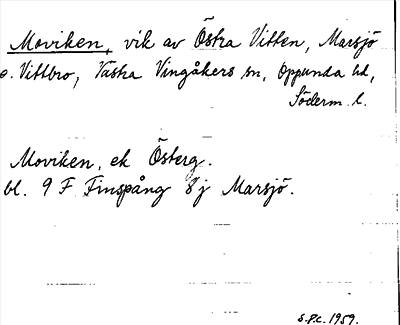 Moviken, vik av Östra Vitten, Marsjö
o. Vittbro, Västra Vingåkers sn, Oppunda hd,
Söderm. l.
Moviken, ek Österg.
bl. 9 F Finspång 8 j Marsjö.
S.P.C. 1959.